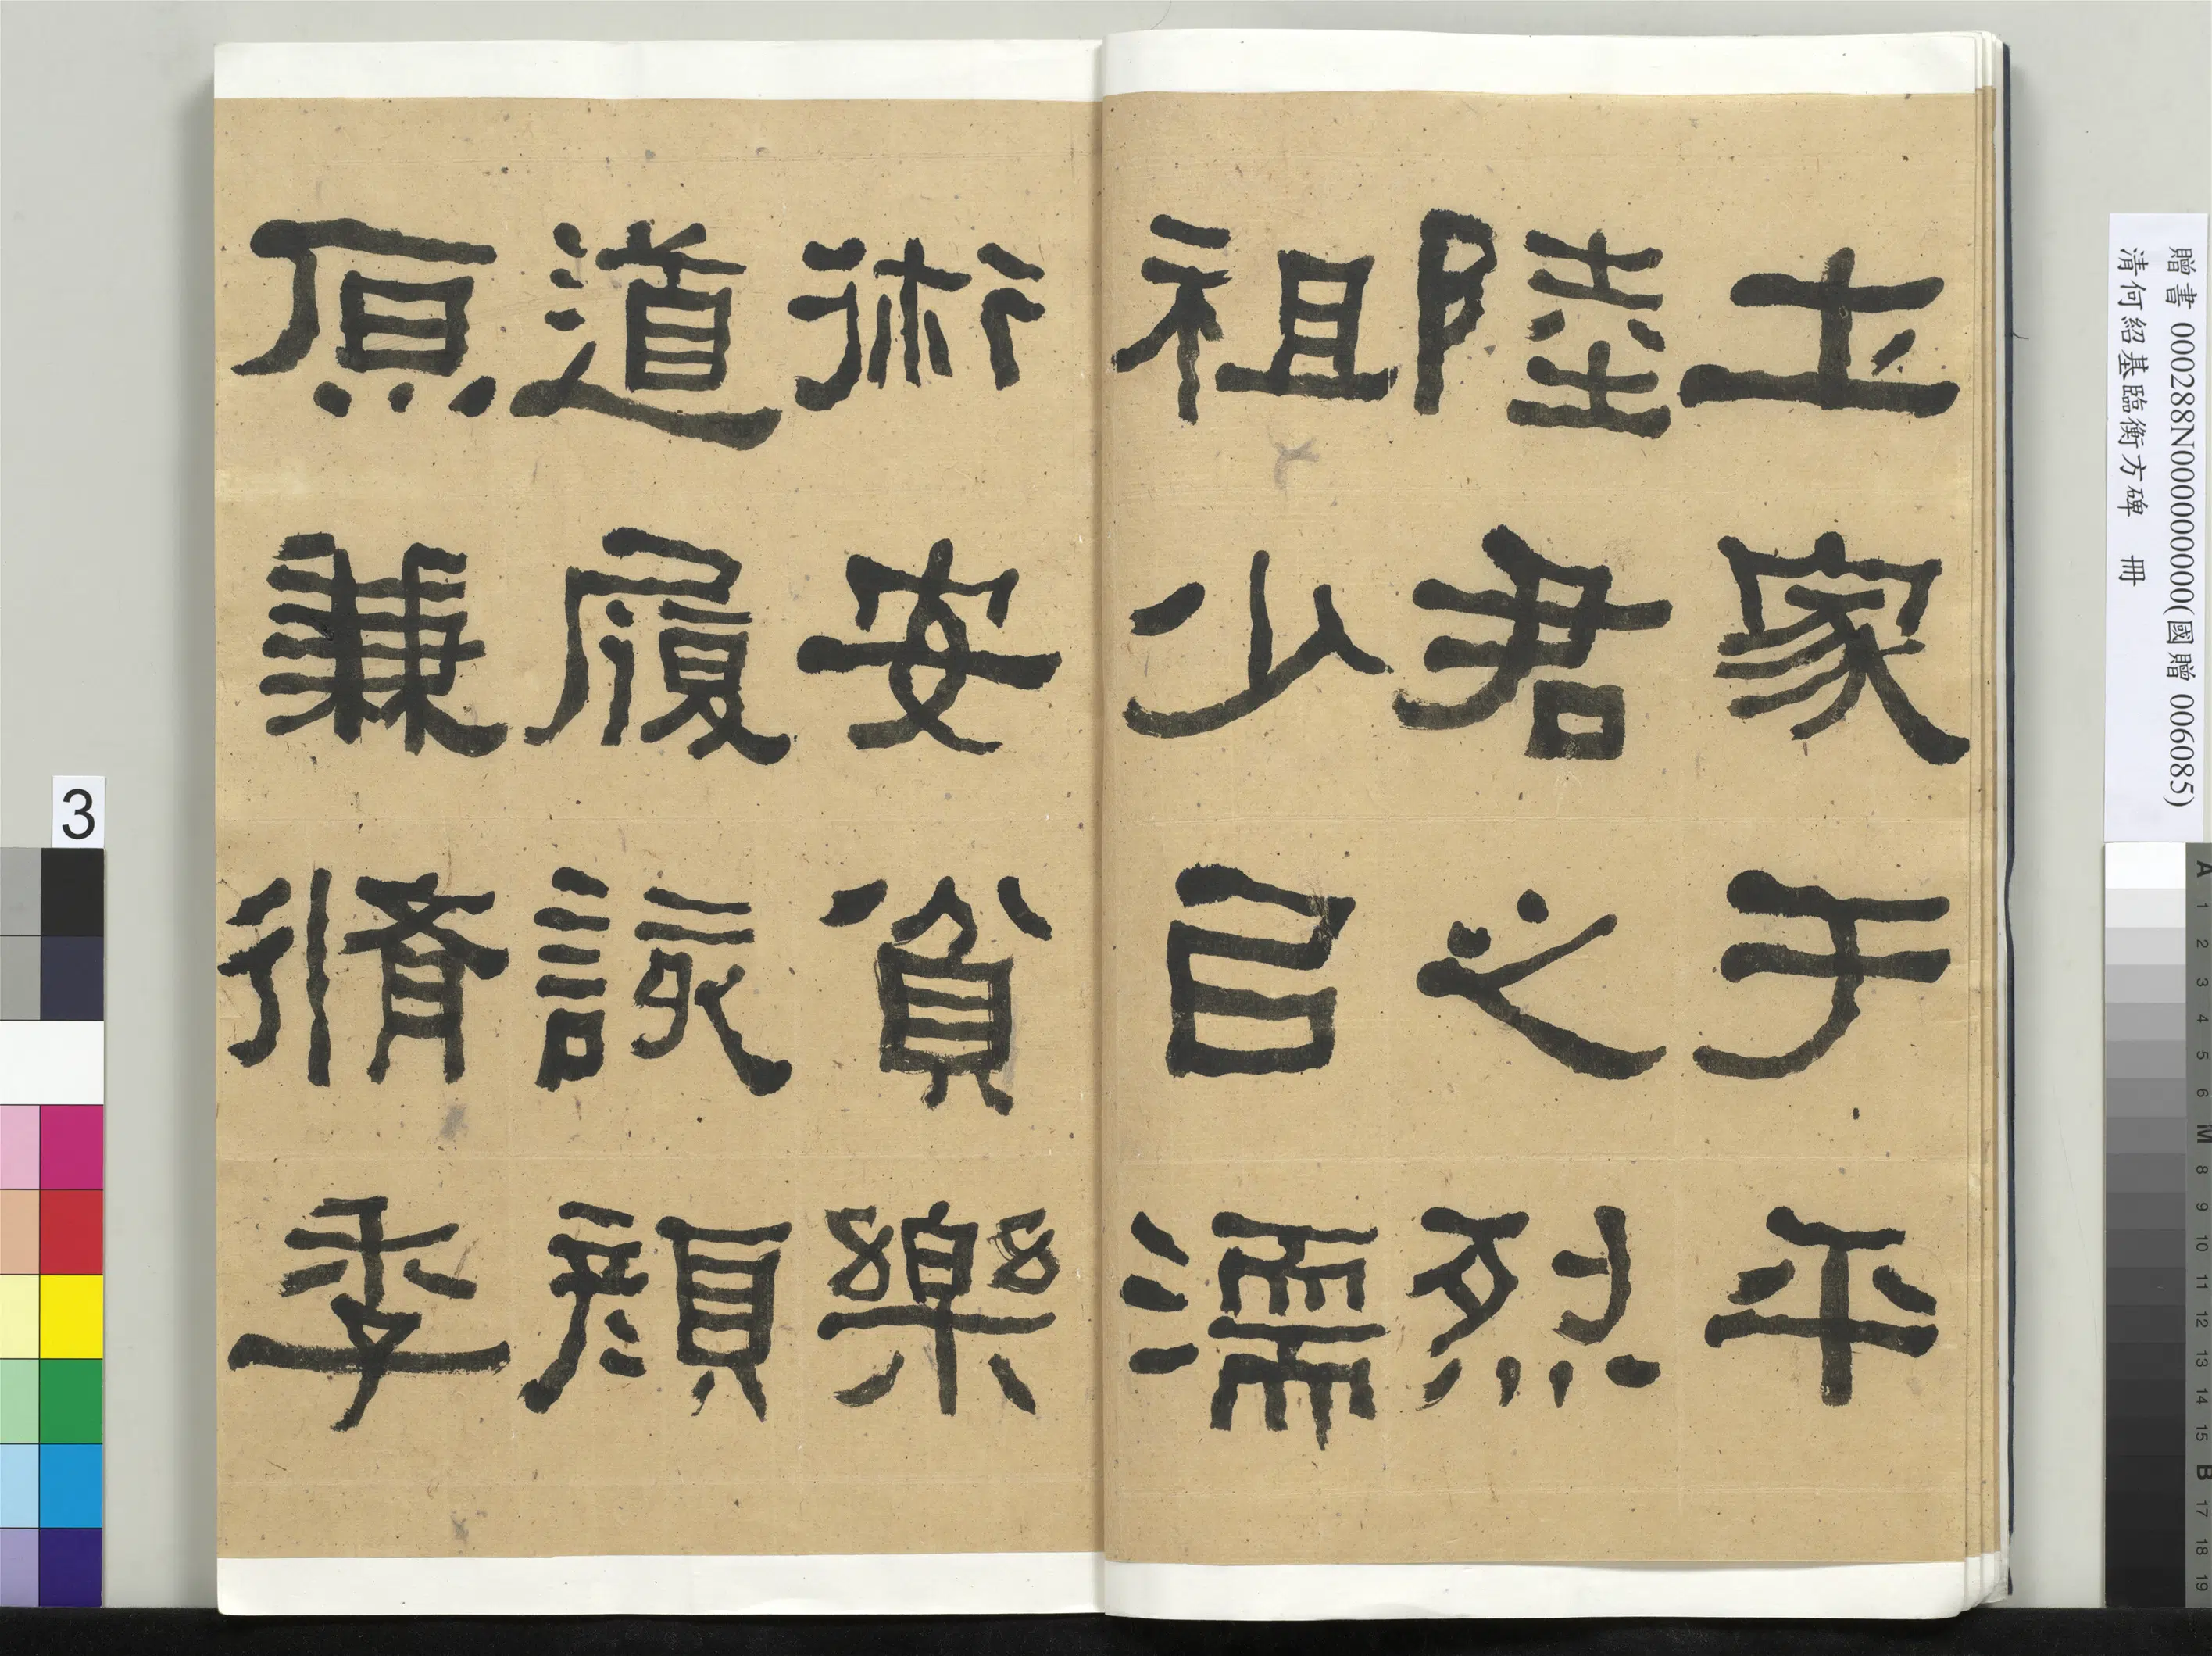 贈書 000288N000000000(國贈 006085)
清何紹基臨衡方碑 冊
圡家于平
陸君之烈
祖少㠯濡
術安貧樂
道履該顏
原兼脩季
3
A 1 2 3 4 5 6 M 8 9 10 11 12 13 14 15 B 17 18 19